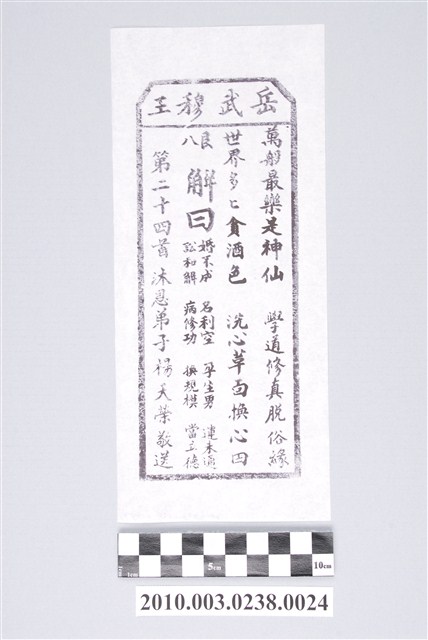 岳武穆王
萬般最樂是神仙 學道修真脫俗緣
世界多匕貪酒色 洗心革面煥心田
八良 解曰 婚不成 名利空 孕生男 運未
訟和解 病修功 換規模 當立德
第二十四首 沐恩弟子楊天榮敬送
5cm
10cm
2010.003.0238.0024